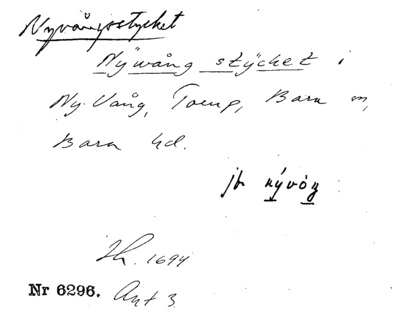 Nyvångsstycket
Nÿwång stÿcket i
Ny Vång, Torup, Bara sn,
Bara hd.
jb nývóŋ
Jh. 1694
Nr 6296. Ant 3.